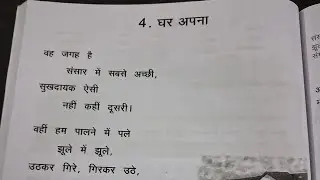 4. घर अपना
वह जगह है
संसार में सबसे अच्छी,
सुखदायक ऐसी
नहीं कहीं दूसरी।
वहीं हम पालने में पले
झूले में झूले,
उठकर गिरे, गिरकर उठे,